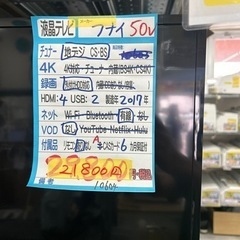 液晶テレビ フナイ 50v
チューナー 地デジ CS・BS
4K 4K対応・チューナー内蔵(BS4K・CS4K)
録画
HDMI:4 USB:2 製造:2017年
ネット Wi-Fi Bluetooth 有線 なし
VOD なし YouTube Netflix Hulu
付属品 リモコン なし B-CASカード 6カ月保証付
21800円